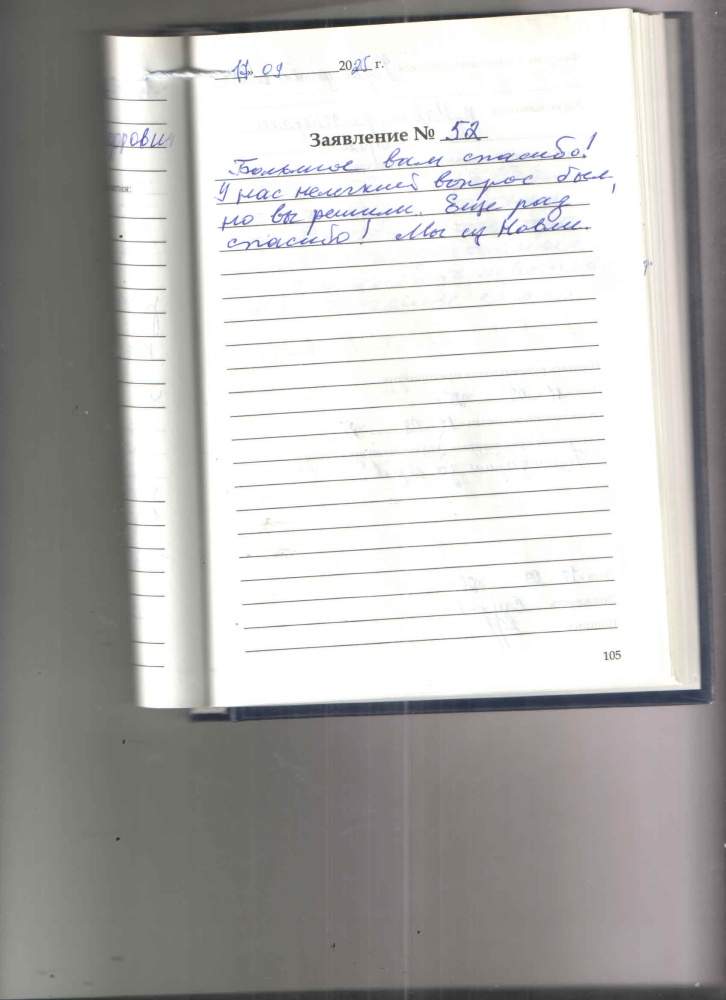 17» 09 2025 г.
Заявление № 52
Большое вам спасибо!
У нас нелегкий вопрос был,
но вы решили. Еще раз
спасибо! Мы из Навли.
105